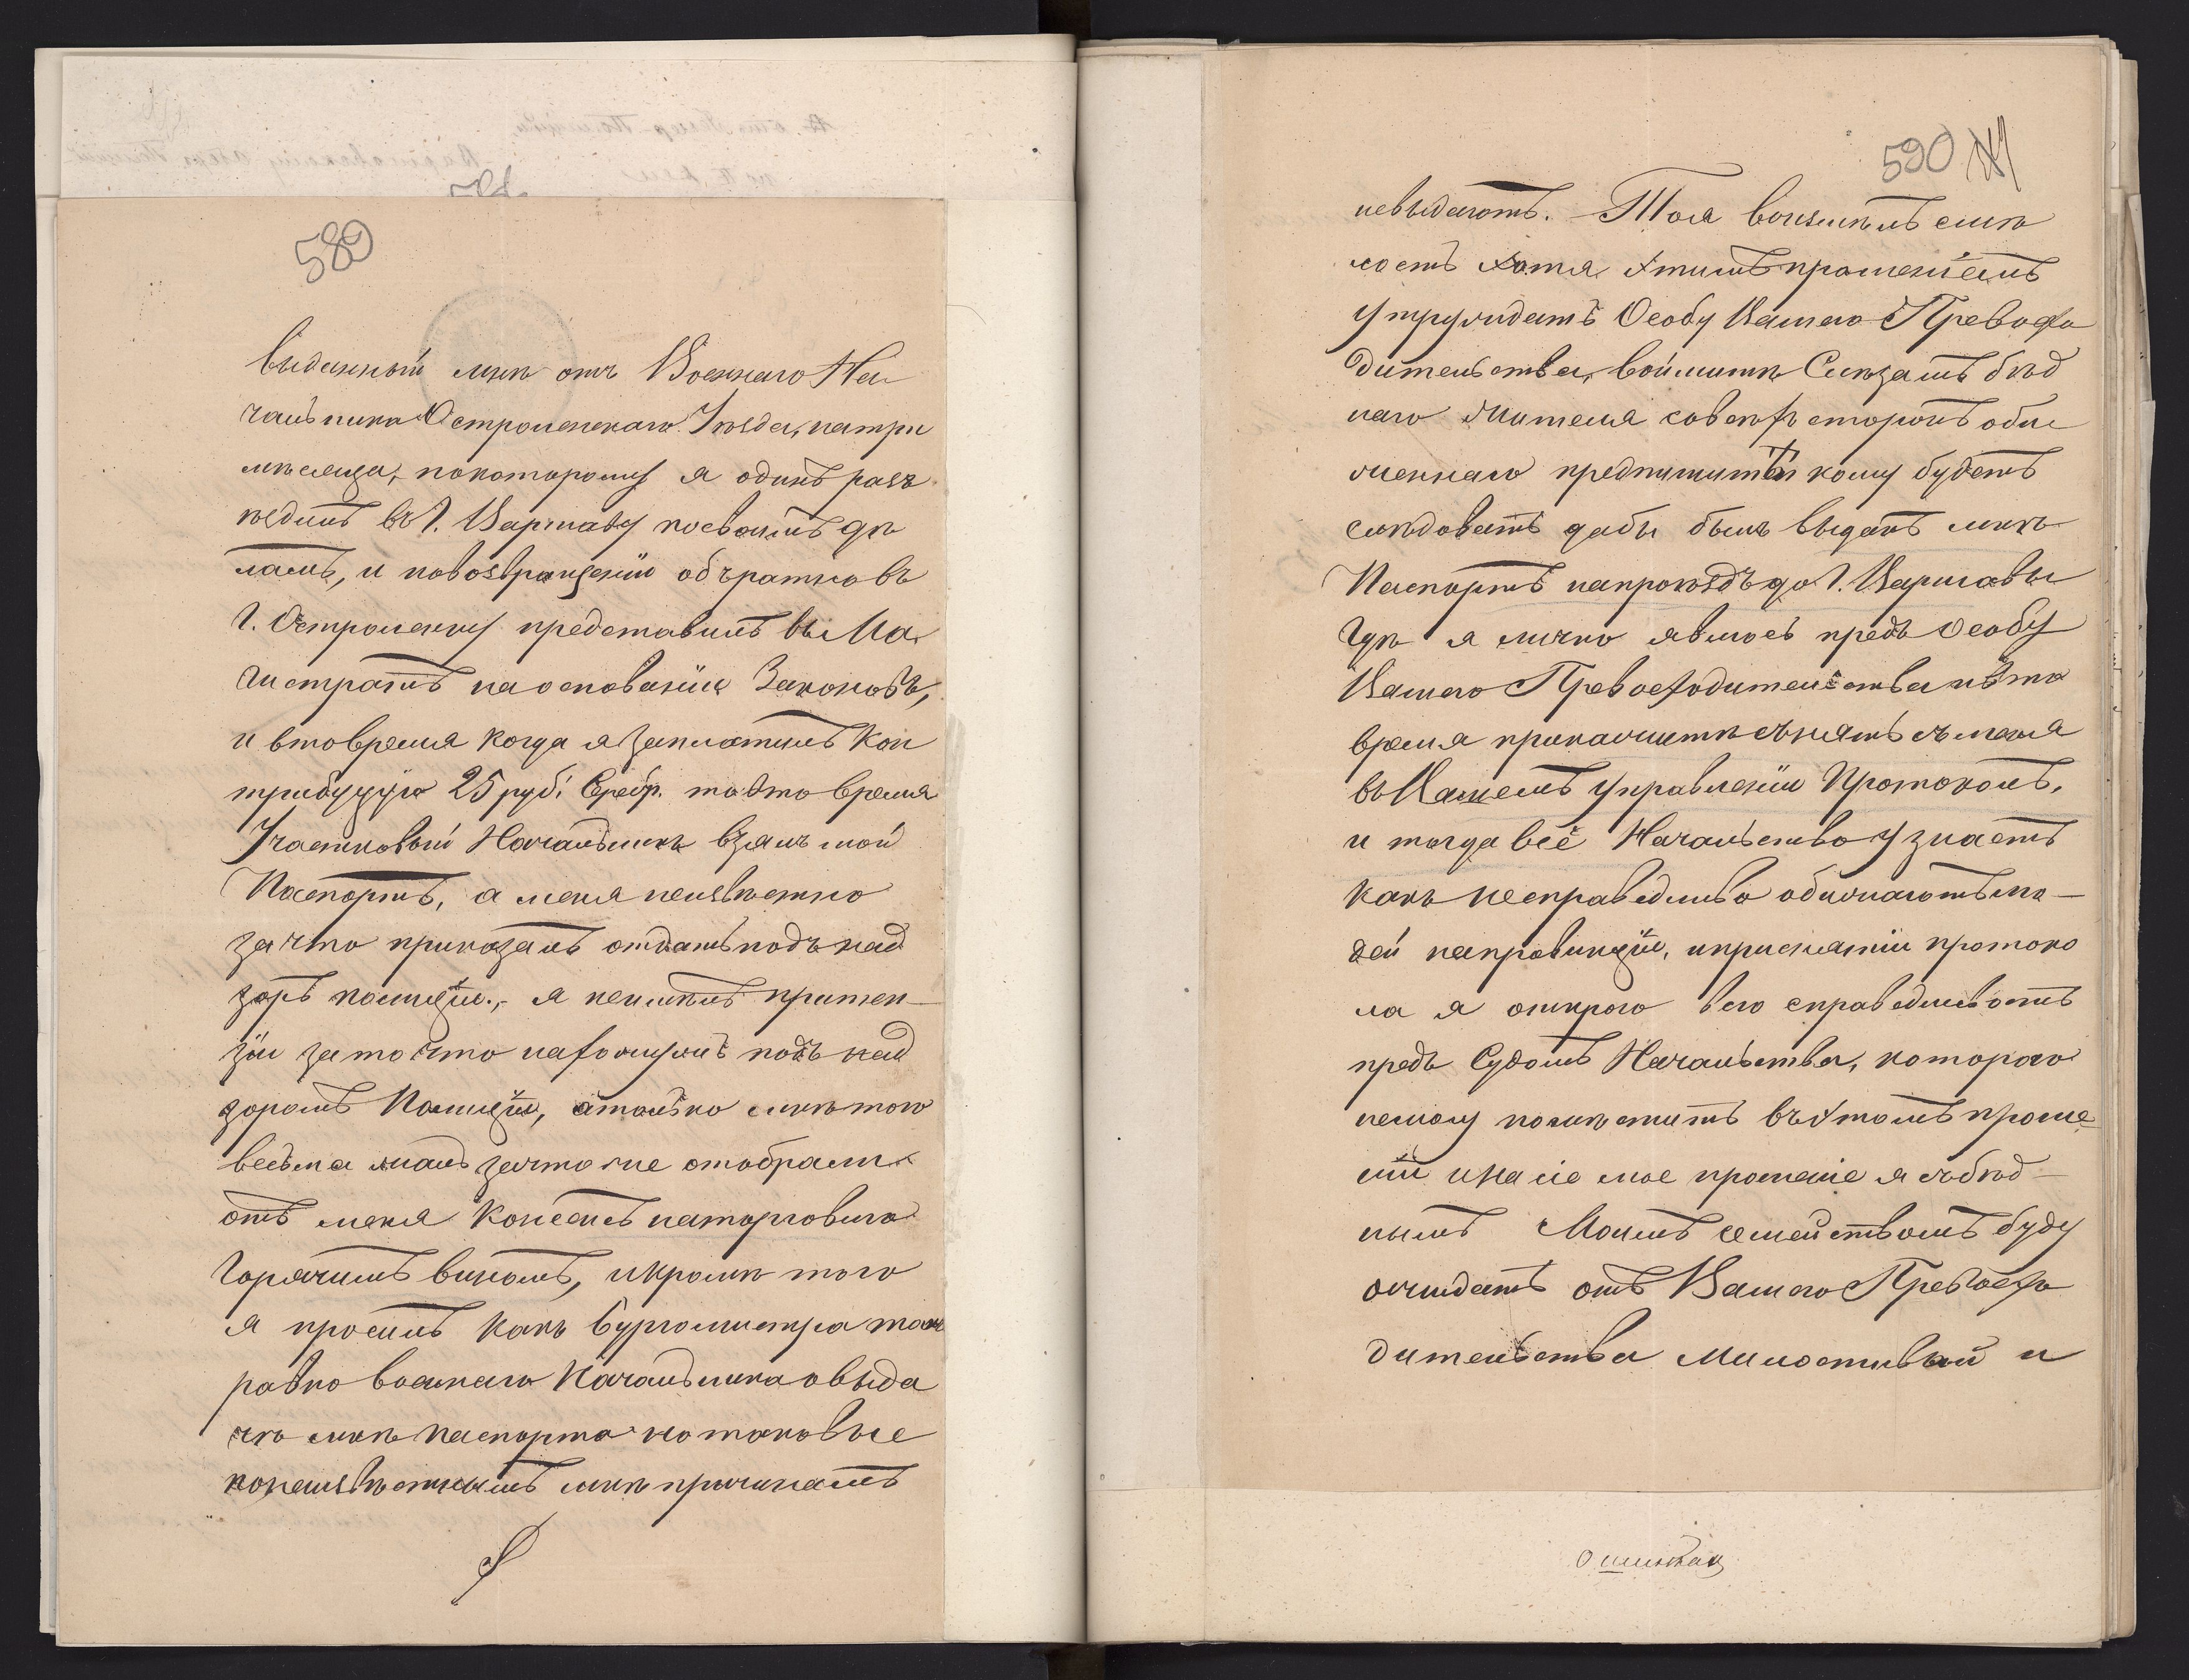 589
выданный мнѣ отъ Военнаго На
чальника Остроленскаго Уѣзда, натри
мѣсяца, покоторому я одинъ разъ
ѣздилъ въ Г. Варшаву посвоимъ дѣ
ламъ, и повозвращенiи обратно въ
Г. Остроленку представилъ въ Ма
гистратъ наоснованiи Законовъ,
и втовремя когда я заплатилъ Кон
трибуцiю 25 руб. Сребр. товто время
Участковый Начальникъ взялъ мой
Паспортъ, а меня неизвѣстно
за что приказалъ отдать подъ над
зоръ полицiи., я неимѣлъ притен—
зiи зато что нахожусь подъ над
зоромъ Полицiи, атолько мнѣ того
весьма жаль зачто же отобрали
отъ меня Консенсъ наторговлю
Горячимъ виномъ, икромѣ того
я просилъ какъ Бургомистра такъ
равно военнаго Начальника овыда
чѣ мнѣ паспорта но таковые
понеизвѣстнымъ мнѣ причинамъ
590
невыдаютъ. Тоя возимѣлъ смѣ
лость хотя этимъ прошенiемъ
утруждать Особу Вашего Превосхо
дительства, воймите Слезамъ бѣд
наго жителя совсѣхъ сторонъ оби
женнаго предпишите кому будетъ
слѣдовать дабы былъ выданъ мнѣ
Паспортъ напроѣздъ до Г. Варшавы
Гдѣ я лично явлюсь предъ Особу
Вашего Превосходительства ивто
время прикажите снять съ меня
въ Вашемъ Управленiи Протоколъ,
и тогда всё Начальство узнаетъ
какъ несправедливо обижаютъ лю—
дей напровинцiи, иприснятiи протоко
ла я открою всю справедливость
предъ Судомъ Начальства, котораго
немогу помѣстить въ этомъ проше
нiи ина сiе мое прошенiе я съ бѣд—
нымъ Моимъ семействомъ буду
ожидать отъ Вашего Превосхо
дительства Милостивый и